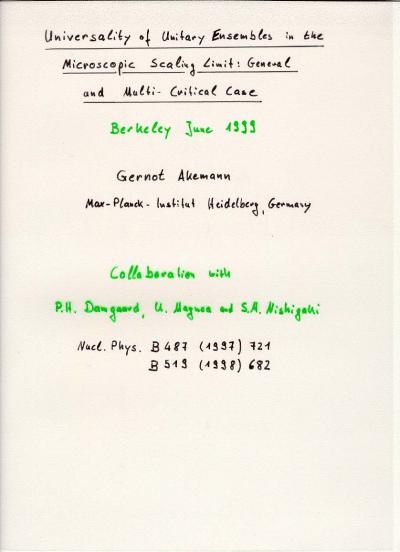 Universality of Unitary Ensembles in the
Microscopic Scaling Limit: General
and Multi-Critical Case
Berkeley June 1999
Gernot Akemann
Max-Planck-Institut Heidelberg, Germany
Collaboration with
P.H. Damgaard, U. Magnea and S.M. Nishigaki
Nucl. Phys. B 487 (1997) 721
B 519 (1998) 682